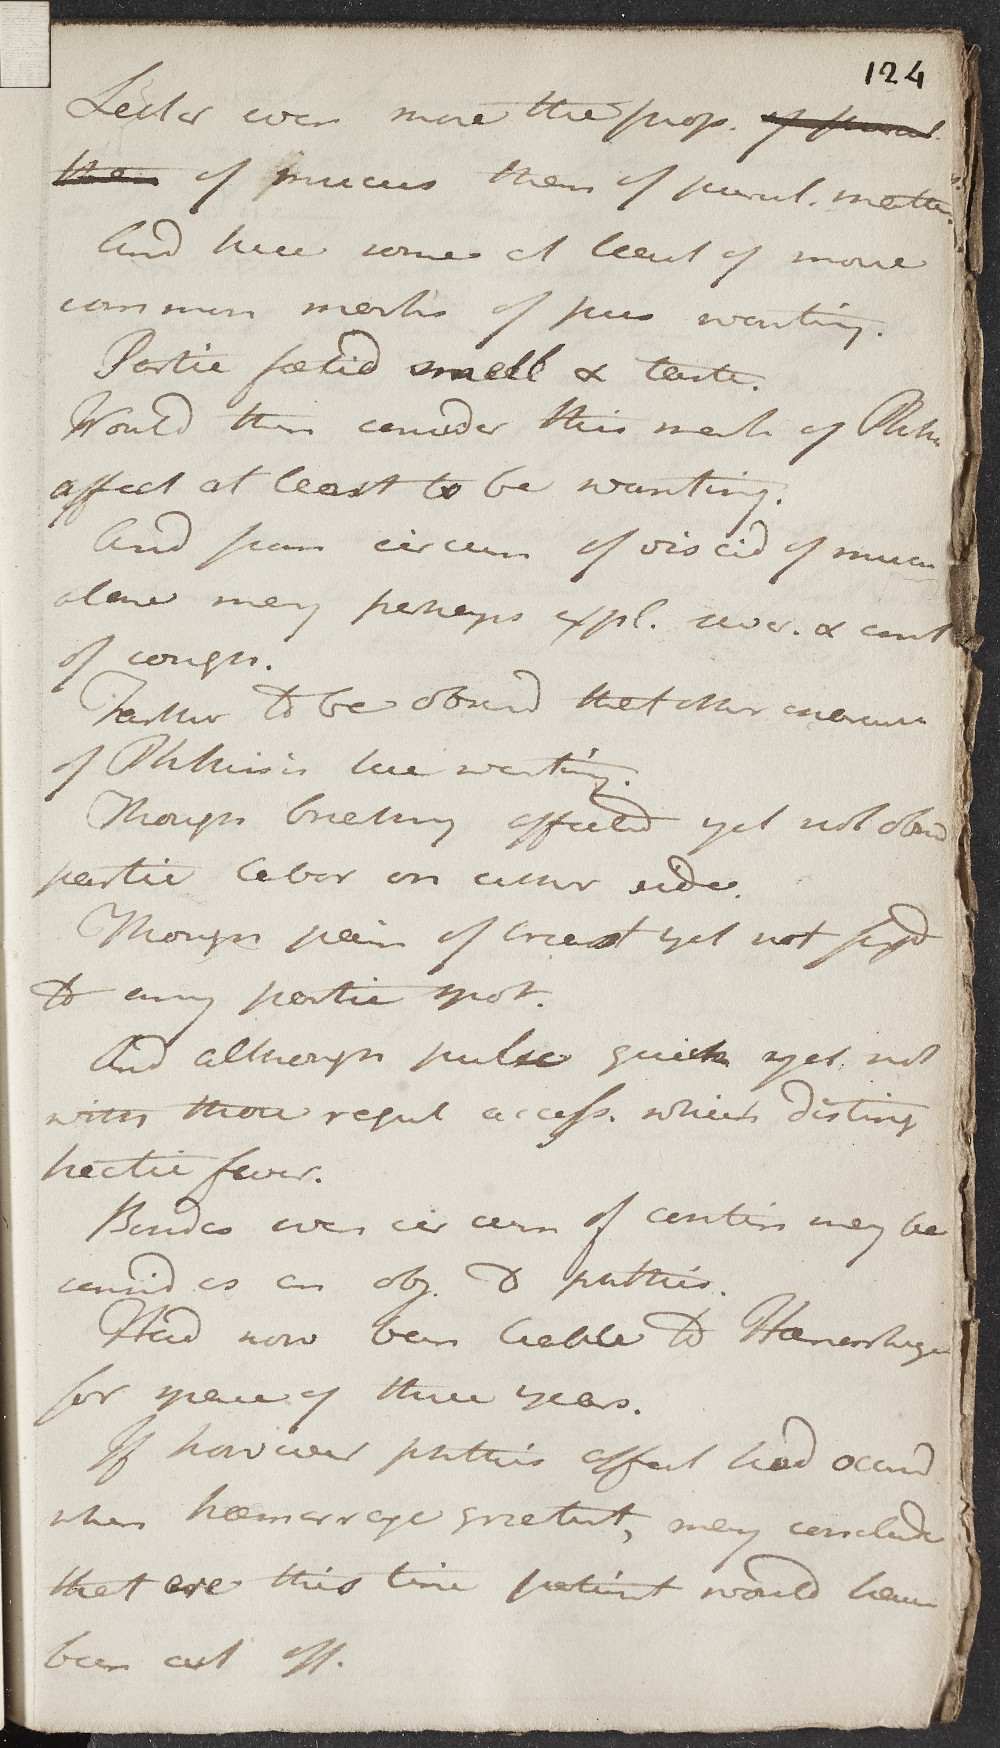 124
Latter even more the prop. of purul.
than of mucus than of purul. matter.
And here some at least of more
common marks of pus wanting.
Partic foetid smell & taste.
Would then consider this mark of Phthis
affect at least to be wanting.
And from circum of viscid of mucu
alone may perhaps expl. sever. & cont
of cough.
Farther to be obsevd that other
of Phthisis here wanting.
Though breathing affected yet not obsed
partic labor on either side.
Though pain of breast yet not fixd
to any partic spot.
And although pulse quick yet not
with those regul access. which disting
hectic fever.
Besides even circum of contin may be
consid as an obj. to phthis.
Had now been liable to Haemorhage
for space of three years.
If however phthis affect had occurd
when haemorrage greatest, may conclude
that ere this time patient would have
been cut off.